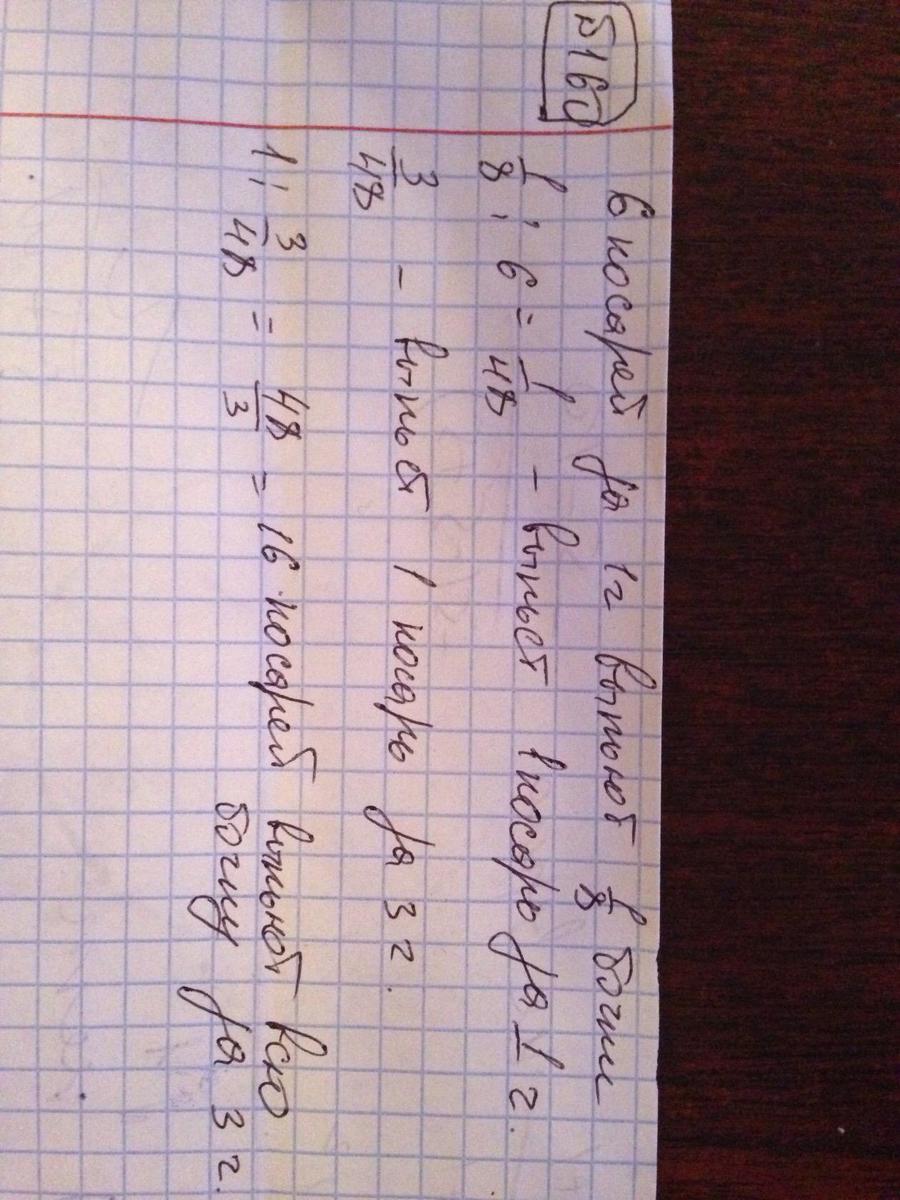 5160
6 косарей за 1 г выпьют 1/8 бочки
1/8 : 6 = 1/48 - выпьет 1 косарь за 1 г.
3/48 - выпьет 1 косарь за 3 г.
1 : 3/48 = 48/3 = 16 косарей выпьют всю
бочку за 3 г.